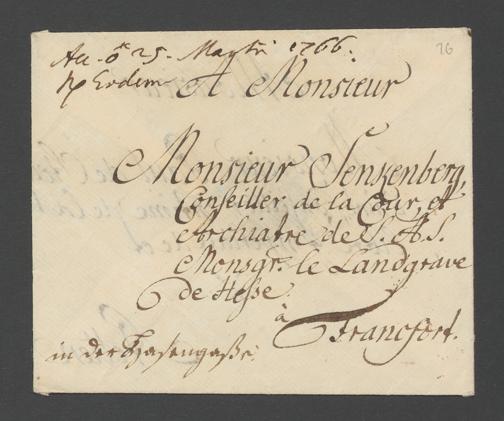 25. Maytii 1766.
A Monsieur
Monsieur Senkenberg,
Conseiller de la Cour, et
Archiatre de S. A. S.
Monsgr. le Landgrave
de Hesse.
à
Francfort.
in der Hasengaße.
26